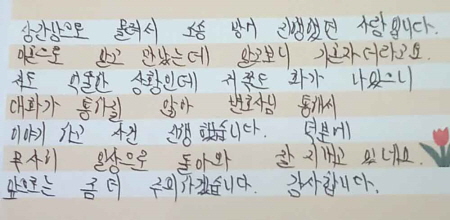 상간남으로 몰려서 소송 방어 진행했던 사람입니다.
미혼으로 알고 만났는데 알고보니 기혼자더라고요.
저도 억울한 상황인데 저쪽도 화가 나있으니
대화가 통하질 않아 변호사님 통해서
이야기 하고 사건 진행 했습니다. 덕분에
무사히 일상으로 돌아와 잘 지내고 있네요.
앞으로는 좀 더 주의하겠습니다. 감사합니다.